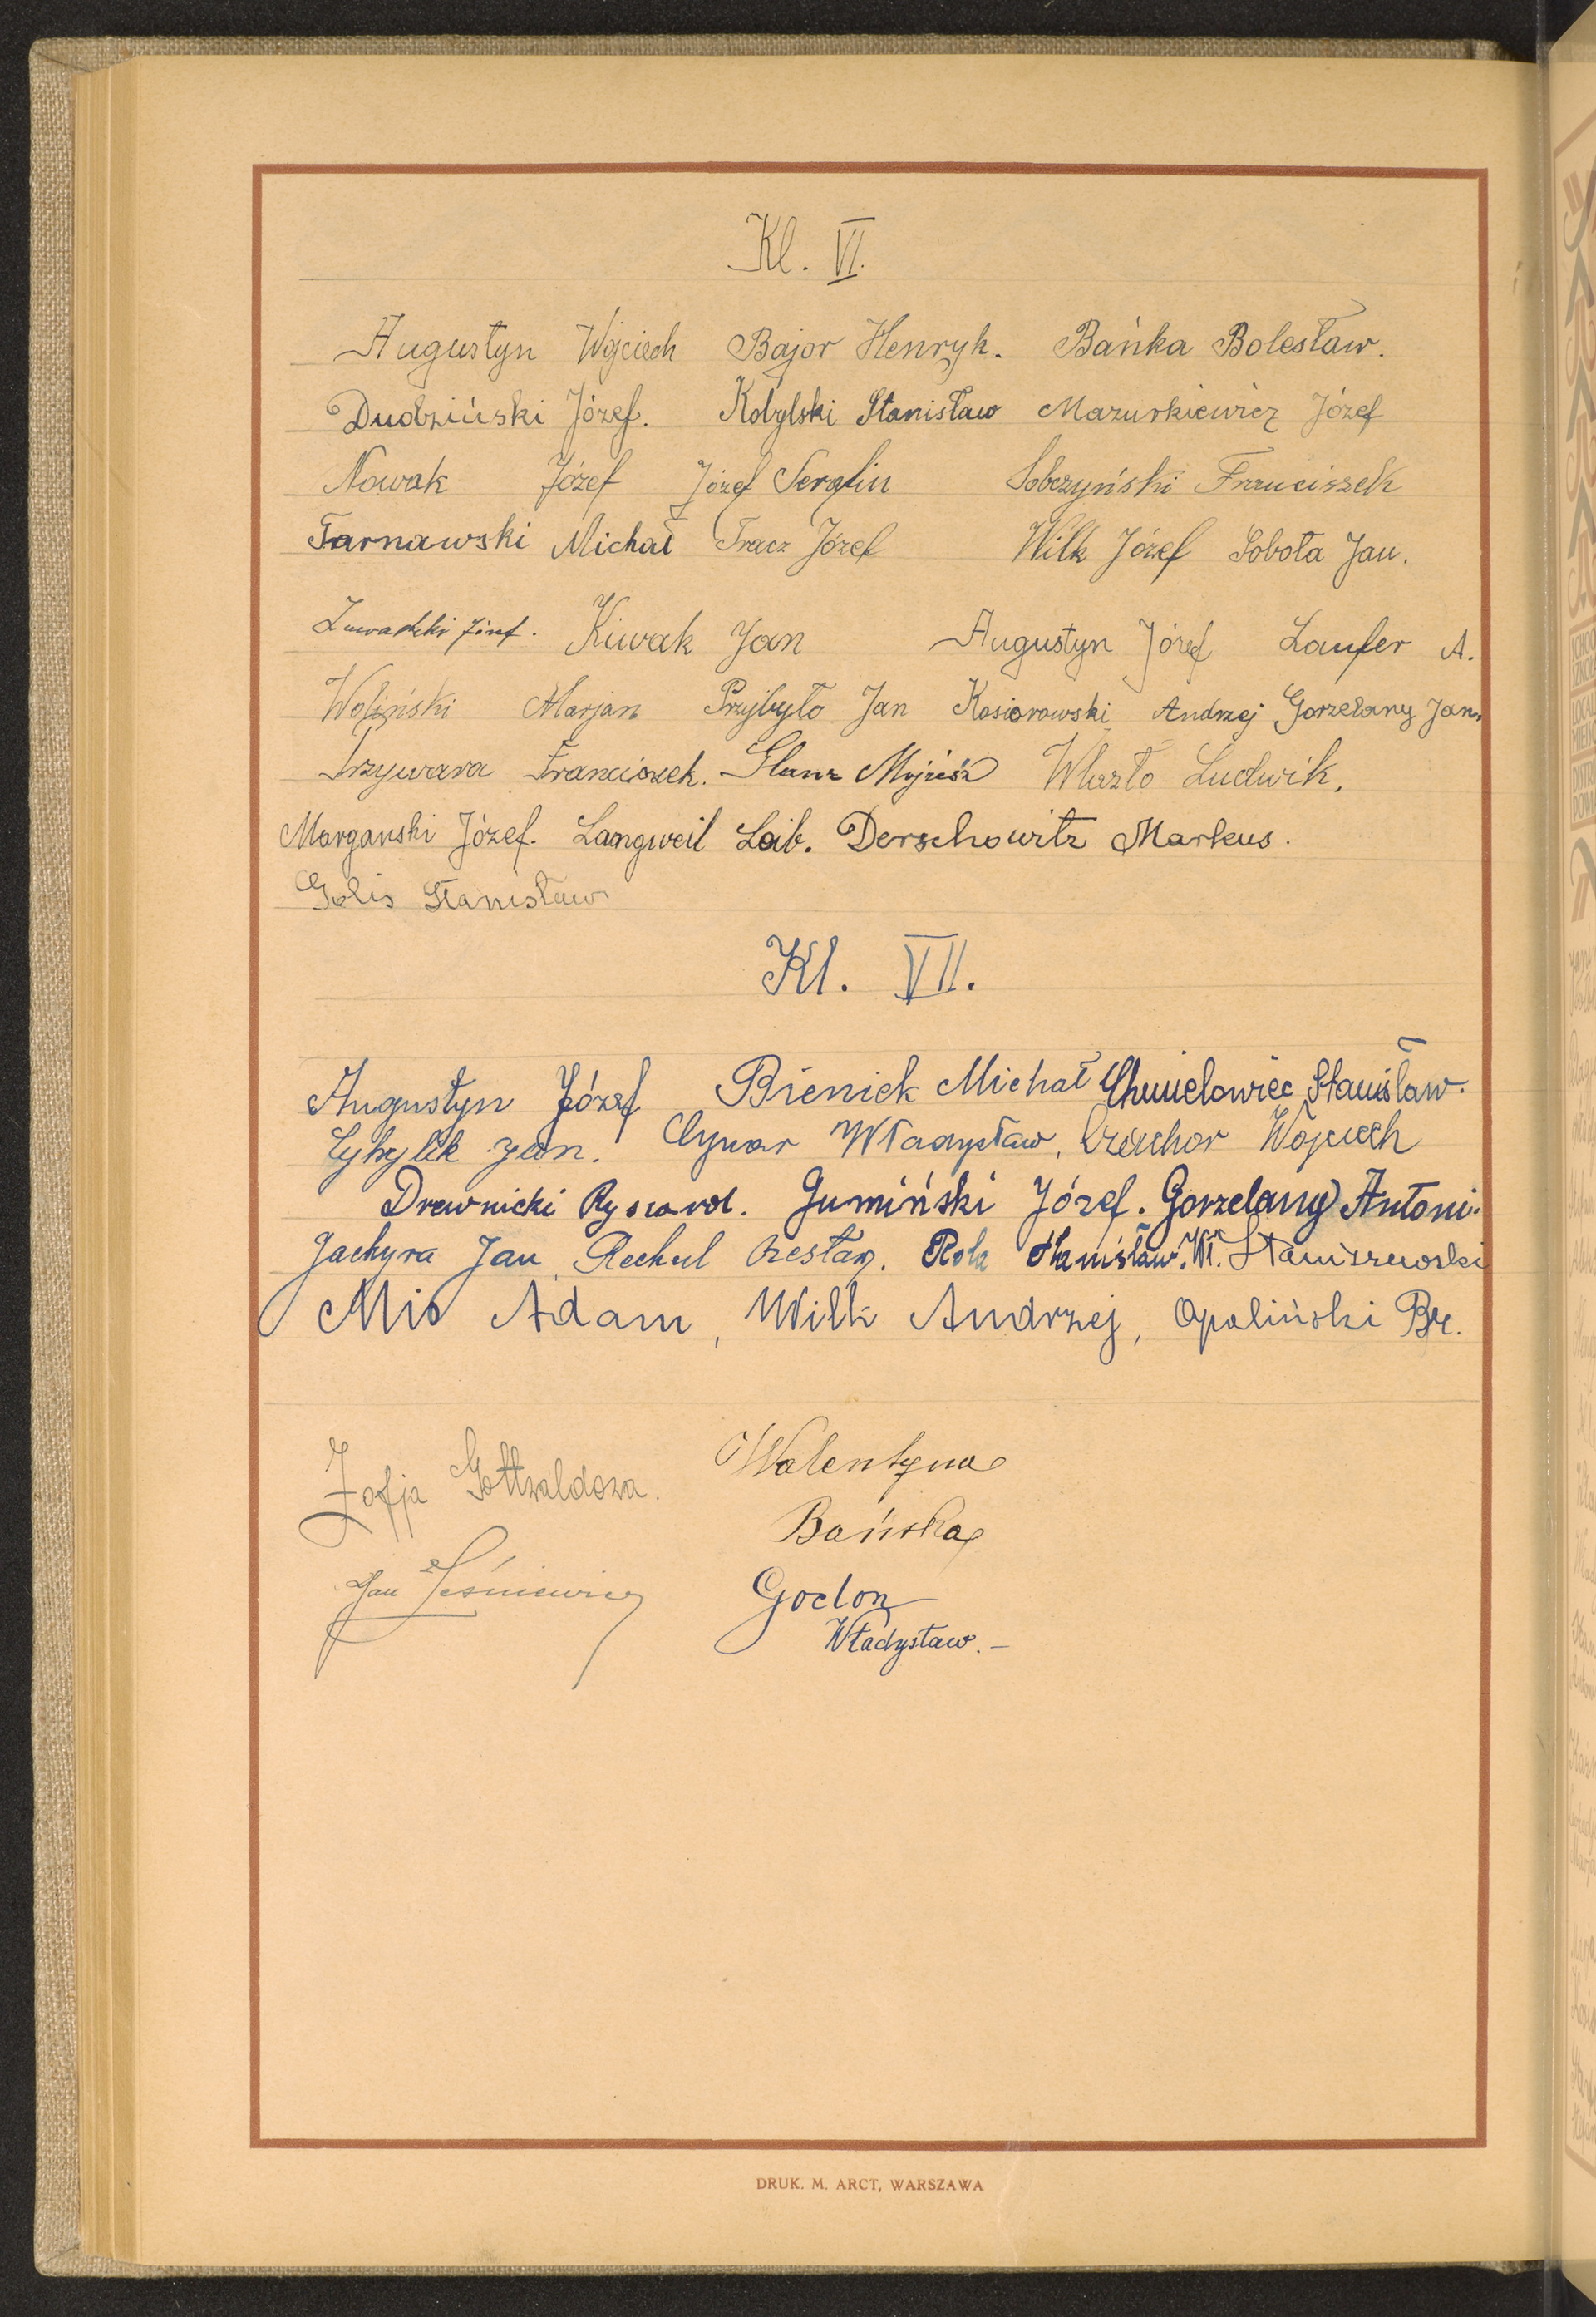 Kl. VI.
Augustyn Wojciech Bajor Henryk. Bańka Bolesław.
Dudziński Józef. Kobylski Stanisław Mazurkiewicz Józef
Nowak Józef Józef Serafin Sobczyński Franciszek
Tarnawski Michał Tracz Józef Wilk Józef Sobota Jan.
Zawadzki Józef. Kiwak Jan Augustyn Józef Laufer A.
Woliński Marjan Przybyło Jan Kosiorowski Andrzej Gorzelany Jan.
Przywara Franciszek. Glanz Mojżesz Wlazło Ludwik.
Margański Józef. Langweil Leib. Derschowitz Markus.
Golis Stanisław
Kl. VII.
Augustyn Józef Bieniek Michał Chmielowiec Stanisław.
Jan. Cynar Władysław, Czachor Wojciech
Drewnicki Ryszard. Gumiński Józef. Gorzelany Antoni.
Jachyra Jan, Rechul Czesław. Rola Stanisław. Wł. Staniszewski
Mio Adam, Wilk Andrzej, Opaliński Br.
Zofja Gottwaldowa. Walentyna
Bańska
Jan Leśniewicz Godon
Władysław.-
DRUK. M. ARCT, WARSZAWA